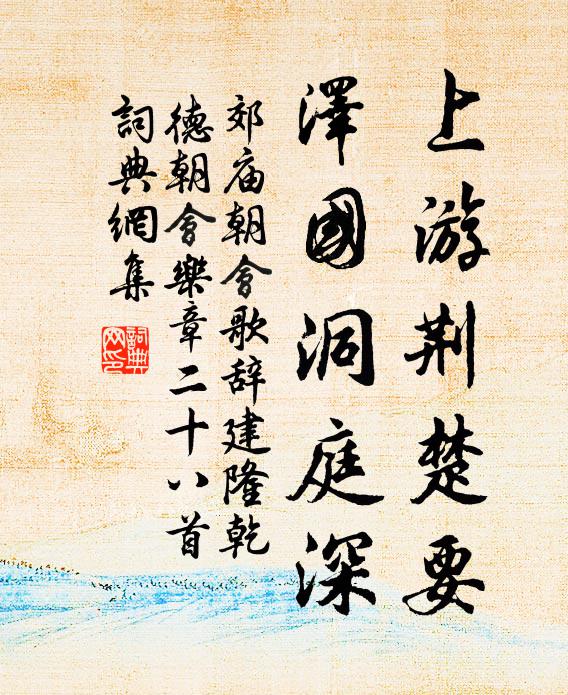 上游荆楚要
澤國洞庭深
郊庙朝會歌辞建隆乾
德朝會樂章二十八首
詞典網集
詞典
网印